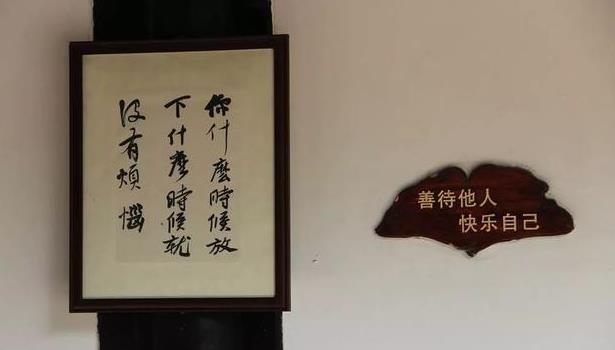 你什麼時候放
下什麼時候就
沒有煩惱
善待他人
快乐自己